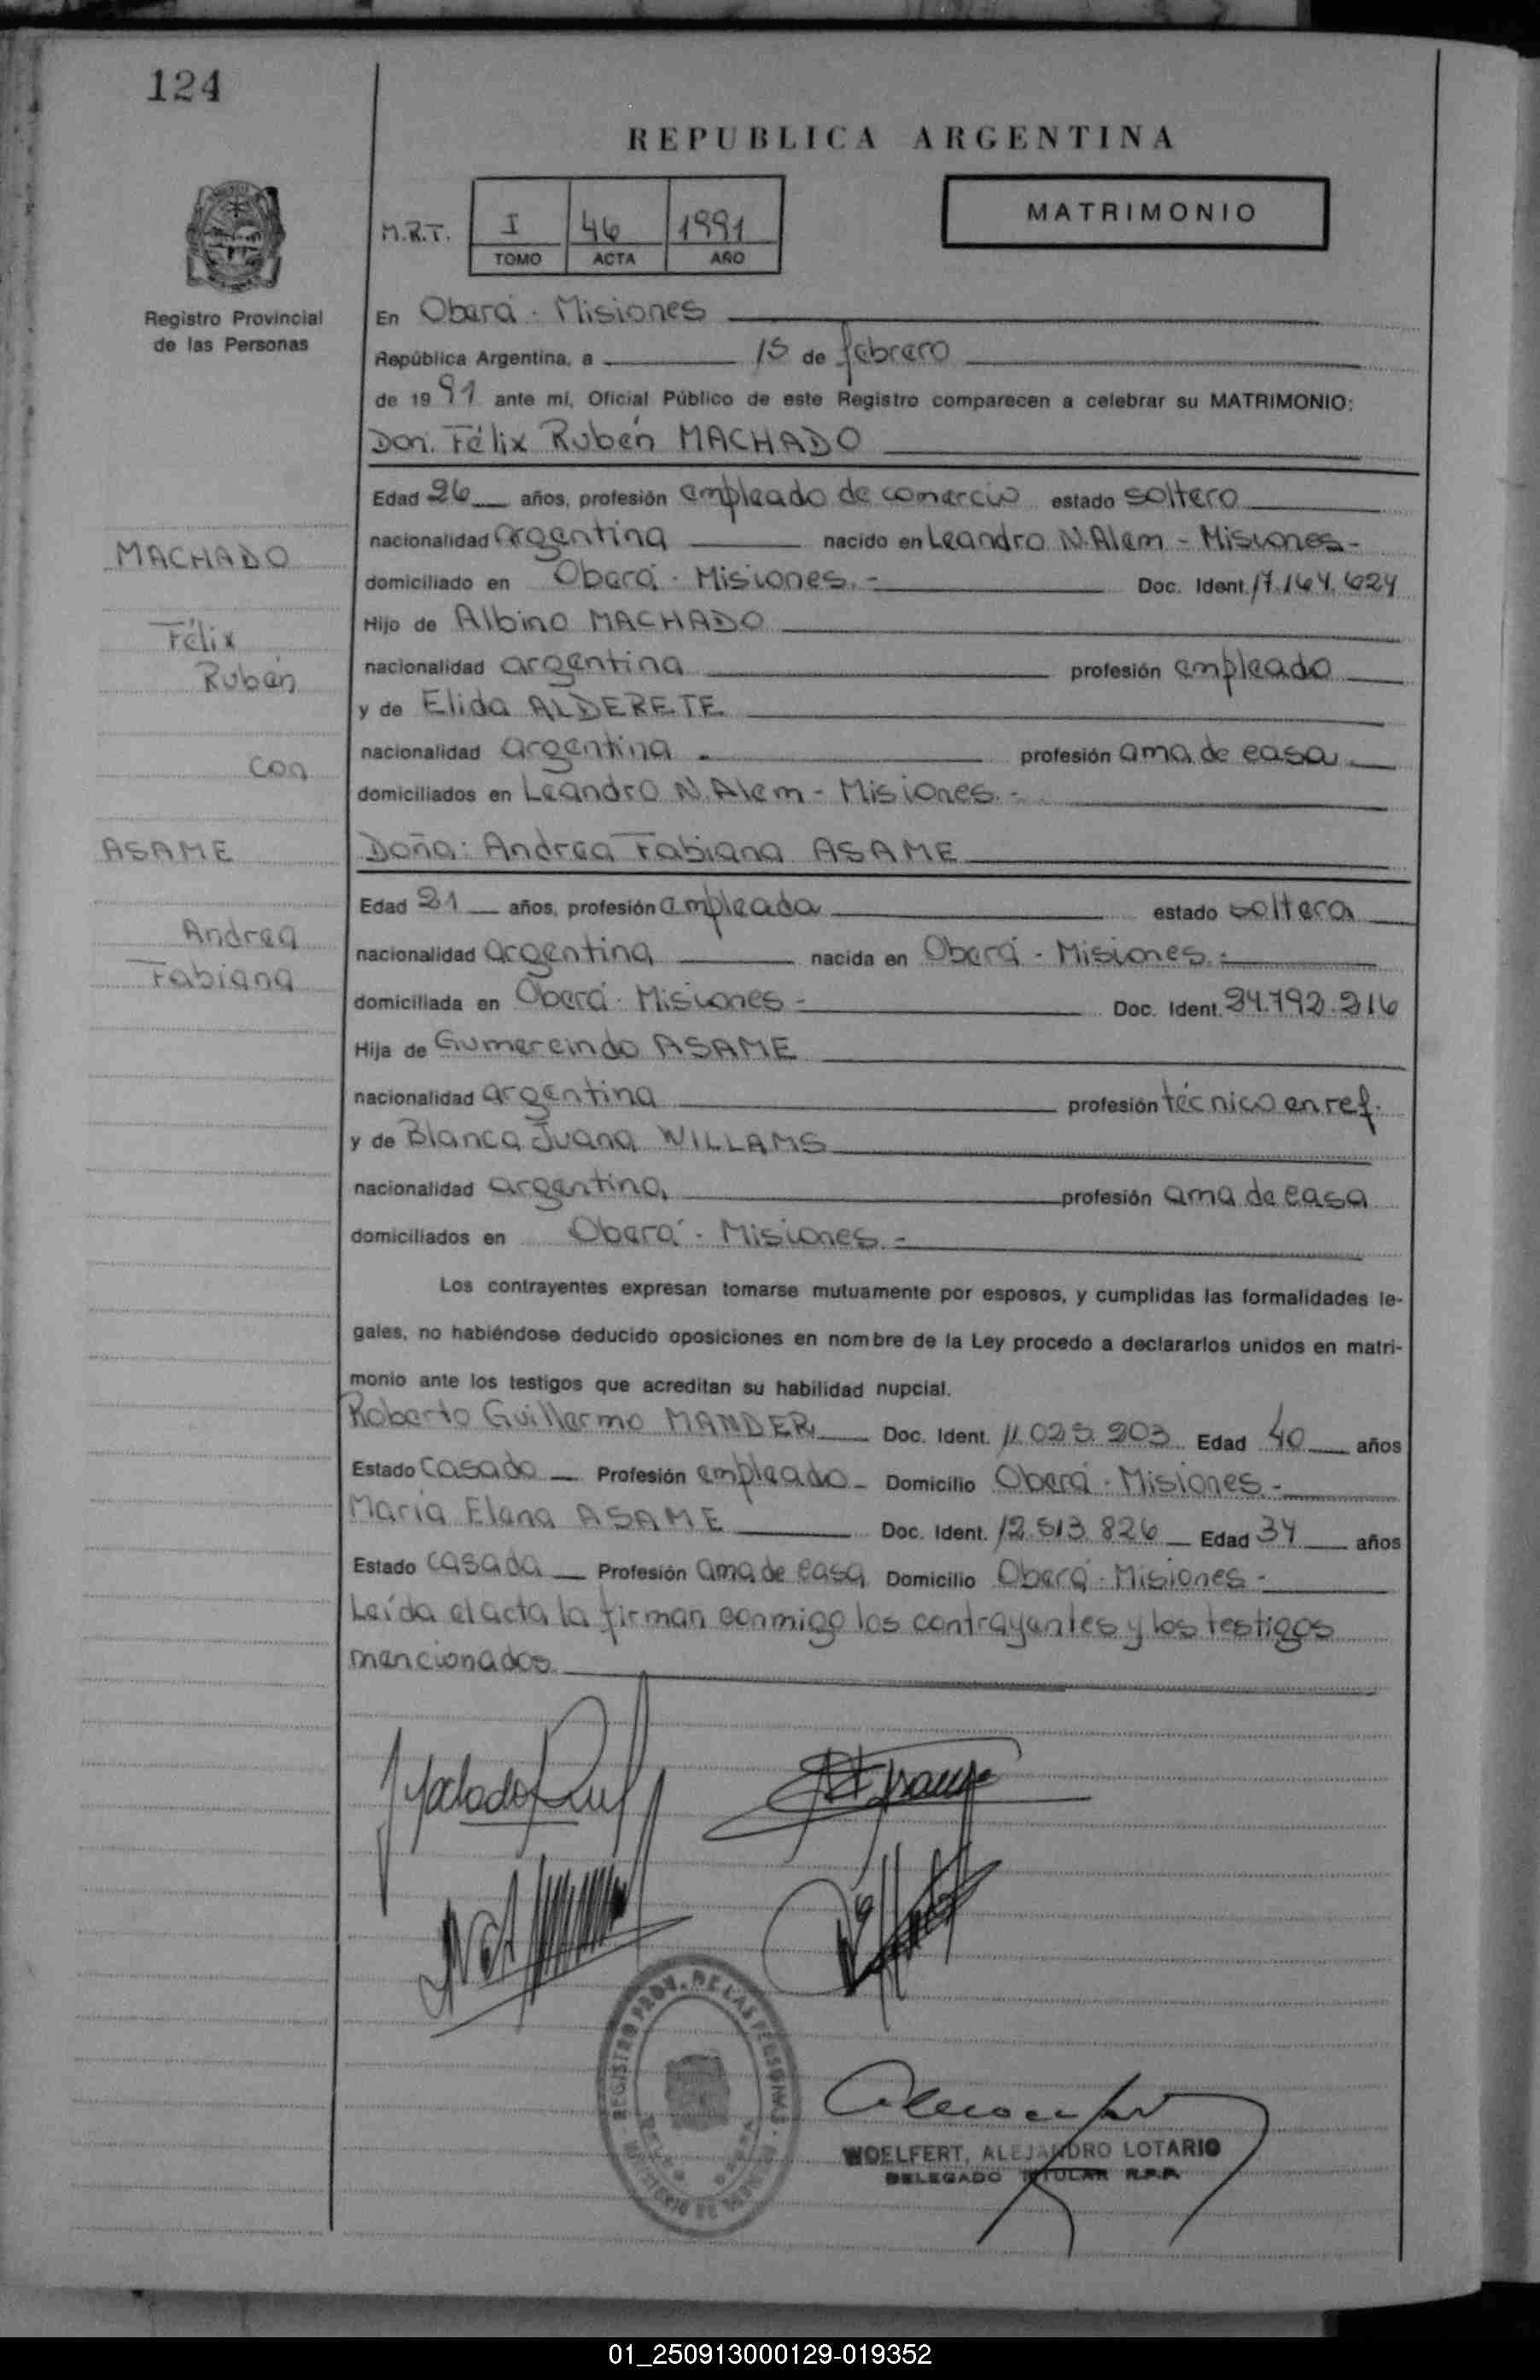 124
REPUBLICA ARGENTINA
M.R.T. I 46 1991
TOMO ACTA AÑO
MATRIMONIO
Registro Provincial
de las Personas
En Oberá - Misiones
República Argentina, a 15 de febrero
de 1991 ante mí, Oficial Público de este Registro comparecen a celebrar su MATRIMONIO:
Don: Félix Rubén MACHADO
Edad 26 años, profesión empleado de comercio estado soltero
nacionalidad argentina nacido en Leandro N. Alem - Misiones -
domiciliado en Oberá - Misiones. - Doc. Ident. 17.164.624
Hijo de Albino MACHADO
nacionalidad argentina profesión empleado
y de Elida ALDERETE
nacionalidad argentina profesión ama de casa
domiciliados en Leandro N. Alem - Misiones. -
Doña: Andrea Fabiana ASAME
Edad 21 años, profesión empleada estado soltera
nacionalidad argentina nacida en Oberá - Misiones. -
domiciliada en Oberá - Misiones - Doc. Ident. 24.792.216
Hija de Gumercindo ASAME
nacionalidad argentina profesión técnico en ref.
y de Blanca Juana WILLAMS
nacionalidad argentina profesión ama de casa
domiciliados en Oberá - Misiones. -
Los contrayentes expresan tomarse mutuamente por esposos, y cumplidas las formalidades le-
gales, no habiéndose deducido oposiciones en nombre de la Ley procedo a declararlos unidos en matri-
monio ante los testigos que acreditan su habilidad nupcial.
Roberto Guillermo MANDER Doc. Ident. 11.025.203 Edad 40 años
Estado casado Profesión empleado Domicilio Oberá - Misiones. -
María Elena ASAME Doc. Ident. 12.513.826 Edad 34 años
Estado casada Profesión ama de casa Domicilio Oberá - Misiones -
Leída el acta la firman conmigo los contrayentes y los testigos
mencionados.
MACHADO
Félix
Rubén
con
ASAME
Andrea
Fabiana
REGISTRO PROV. DE LAS PERSONAS
WOELFERT, ALEJANDRO LOTARIO
DELEGADO TITULAR R.P.P.
01_250913000129-019352